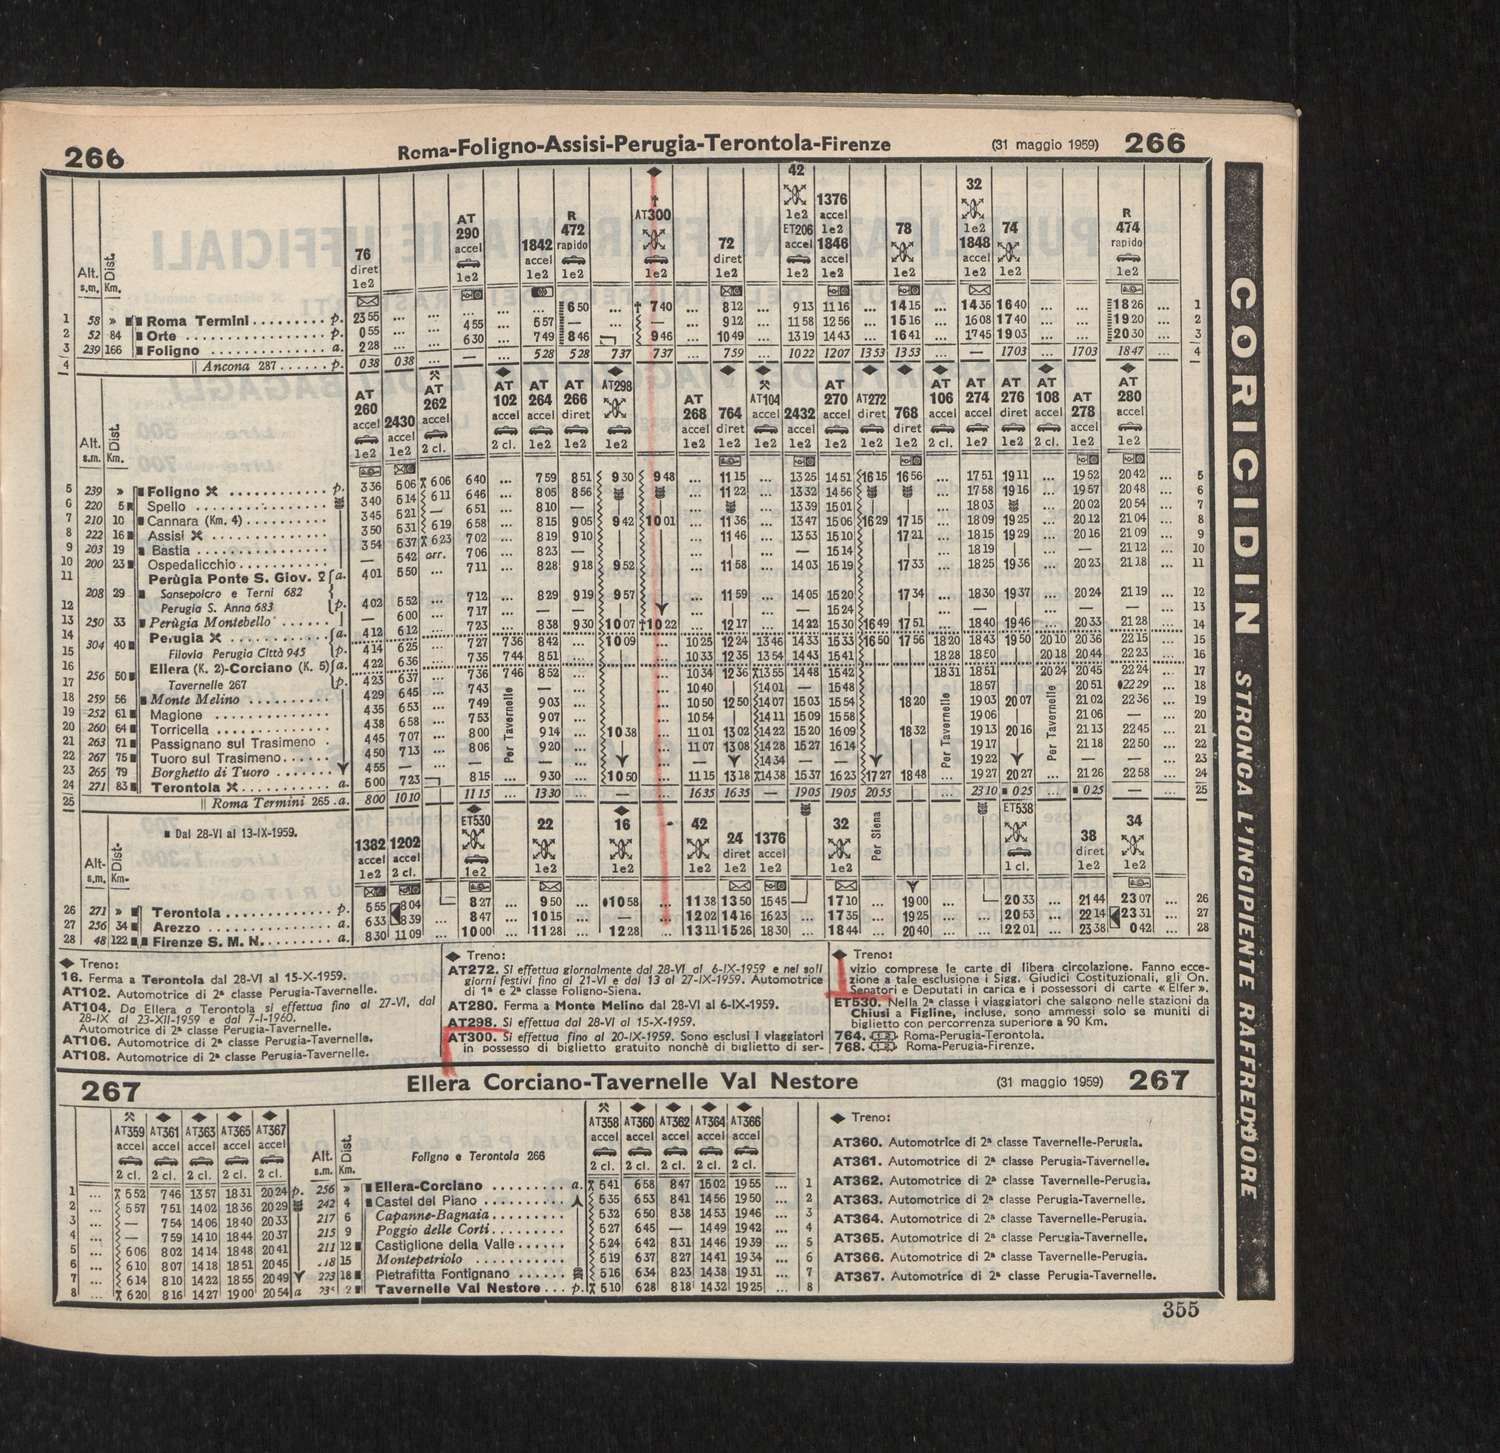 266 Roma-Foligno-Assisi-Perugia-Terontola-Firenze (31 maggio 1959) 266
76 diret 1e2
AT 290 accel 1e2
1842 accel 1e2
R 472 rapido 1e2
AT300 1e2
72 diret 1e2
42 1e2 ET206 accel 1e2
1376 accel 1e2 1846 accel 1e2
78 1e2
32 1e2 1848 accel 1e2
74 1e2
R 474 rapido 1e2
Alt. s.m. Dist. Km.
1 58 » Roma Termini p. 23 55 ... ... ... ... 6 50 ... † 7 40 ... 8 12 ... 9 13 11 16 ... 14 15 ... 14 35 16 40 ... ... 18 26 ... 1
2 52 84 Orte p. 0 55 ... ... 4 55 ... 6 57 — ... — ... 9 12 ... 11 58 12 56 ... 15 16 ... 16 08 17 40 ... ... 19 20 ... 2
3 239 166 Foligno a. 2 28 ... ... 6 30 ... 7 49 8 46 9 46 ... 10 49 ... 13 19 14 43 ... 16 41 ... 17 45 19 03 ... ... 20 30 ... 3
4 || Ancona 287 p. 0 38 0 38 ... — ... 5 28 5 28 7 37 7 37 ... 7 59 ... 10 22 12 07 13 53 13 53 ... — 17 03 ... 17 03 18 47 ... 4
AT 260 accel 1e2
2430 accel 1e2
AT 262 accel 2 cl.
AT 102 accel 2 cl.
AT 264 accel 1e2
AT 266 diret 1e2
AT298 1e2
AT 268 accel 1e2
764 diret 1e2
AT104 accel 1e2
2432 accel 1e2
AT 270 accel 1e2
AT272 diret 1e2
768 diret 1e2
AT 106 accel 2 cl.
AT 274 accel 1e2
AT 276 diret 1e2
AT 108 accel 2 cl.
AT 278 accel 1e2
AT 280 accel 1e2
Alt. s.m. Dist. Km.
5 239 » Foligno p. 3 36 5 06 6 06 6 40 ... 7 59 8 51 9 30 9 48 ... 11 15 ... 13 25 14 51 16 15 16 56 ... 17 51 19 11 ... 19 52 20 42 ... 5
6 220 5 Spello 3 40 5 14 6 11 6 46 ... 8 05 8 56 ... 11 22 ... 13 32 14 56 ... 17 58 19 16 ... 19 57 20 48 ... 6
7 210 10 Cannara (Km. 4) 3 45 5 21 — 6 51 ... 8 10 — ... 13 39 15 01 ... 18 03 ... 20 02 20 54 ... 7
8 222 16 Assisi 3 50 5 31 6 19 6 58 ... 8 15 9 05 9 42 10 01 ... 11 36 ... 13 47 15 06 16 29 17 15 ... 18 09 19 25 ... 20 12 21 04 ... 8
9 203 19 Bastia 3 54 5 37 6 23 7 02 ... 8 19 9 10 ... 11 46 ... 13 53 15 10 17 21 ... 18 15 19 29 ... 20 16 21 09 ... 9
10 200 23 Ospedalicchio — 5 42 arr. 7 06 ... 8 23 — ... — 15 14 ... 18 19 — ... — 21 12 ... 10
11 Perùgia Ponte S. Giov. 2 a. 4 01 5 50 ... 7 11 ... 8 28 9 18 9 52 ... 11 58 ... 14 03 15 19 17 33 ... 18 25 19 36 ... 20 23 21 18 ... 11
208 29 Sansepolcro e Terni 682
12 Perugia S. Anna 683 p. 4 02 5 52 ... 7 12 ... 8 29 9 19 9 57 ... 11 59 ... 14 05 15 20 17 34 ... 18 30 19 37 ... 20 24 21 19 ... 12
13 250 33 Perùgia Montebello — 6 00 ... 7 17 ... — — ... — 15 24 ... — — — 13
14 304 40 Perugia a. 4 12 6 12 ... 7 23 ... 8 38 9 30 10 07 †10 22 ... 12 17 ... 14 22 15 30 16 49 17 51 ... 18 40 19 46 ... 20 33 21 28 ... 14
15 Filovia Perugia Città 945 p. 4 14 6 25 ... 7 27 7 36 8 42 ... 10 09 ... 10 25 12 24 13 46 14 33 15 33 16 50 17 56 18 20 18 43 19 50 20 10 20 36 22 15 ... 15
16 Ellera (K. 2)-Corciano (K. 5) a. 4 22 6 36 ... 7 35 7 44 8 51 ... 10 33 12 35 13 54 14 43 15 41 18 28 18 50 20 18 20 44 22 23 ... 16
17 256 50 Tavernelle 267 p. 4 23 6 37 ... 7 36 7 46 8 52 ... 10 34 12 36 13 55 14 48 15 42 18 31 18 51 20 24 20 45 22 24 ... 17
18 259 56 Monte Melino 4 29 6 45 ... 7 43 — ... 10 40 14 01 — 15 48 18 57 20 51 22 29 ... 18
19 252 61 Magione 4 35 6 53 ... 7 49 9 03 ... 10 50 12 50 14 07 15 03 15 54 18 20 19 03 20 07 21 02 22 36 ... 19
20 260 64 Torricella 4 38 6 58 ... 7 53 9 07 ... 10 54 14 11 15 09 15 58 19 06 21 06 — ... 20
21 263 71 Passignano sul Trasimeno 4 45 7 07 ... 8 00 9 14 ... 10 38 ... 11 01 13 02 14 22 15 20 16 09 18 32 19 13 20 16 21 13 22 45 ... 21
22 267 75 Tuoro sul Trasimeno 4 50 7 13 ... 8 06 9 20 ... 11 07 13 08 14 28 15 27 16 14 19 17 21 18 22 50 ... 22
23 265 79 Borghetto di Tuoro 4 55 — 14 34 — 19 22 — — ... 23
24 271 83 Terontola 5 00 7 23 8 15 ... 9 30 ... 10 50 ... 11 15 13 18 14 38 15 37 16 23 17 27 18 48 19 27 20 27 ... 21 26 22 58 ... 24
25 || Roma Termini 265 a. 8 00 10 10 11 15 ... 13 30 ... — ... 16 35 16 35 — 19 05 19 05 20 55 ... 23 10 0 25 ... 0 25 — ... 25
Per Tavernelle
Per Tavernelle
Per Tavernelle
Per Siena
Dal 28-VI al 13-IX-1959.
Alt. s.m. Dist. Km.
1382 accel 1e2
1202 accel 2 cl.
ET530 1e2
22 1e2
16 1e2
42 1e2
24 diret 1e2
1376 accel 1e2
32 1e2
ET538 1 cl.
38 diret 1e2
34 1e2
26 271 » Terontola p. 5 55 8 04 8 27 ... 9 50 ... 10 58 ... 11 38 13 50 15 45 17 10 ... 19 00 ... 20 33 ... 21 44 23 07 ... 26
27 256 34 Arezzo a. 6 33 8 39 8 47 ... 10 15 ... — ... 12 02 14 16 16 23 ... 17 35 ... 19 25 ... 20 53 ... 22 14 23 31 ... 27
28 48 122 Firenze S. M. N. a. 8 30 11 09 ... 10 00 ... 11 28 ... 12 28 ... 13 11 15 26 18 30 ... 18 44 ... 20 40 ... 22 01 ... 23 38 0 42 ... 28
◆ Treno:
16. Ferma a Terontola dal 28-VI al 15-X-1959.
AT102. Automotrice di 2ª classe Perugia-Tavernelle.
AT104. Da Ellera a Terontola si effettua fino al 27-VI, dal
28-IX al 23-XII-1959 e dal 7-I-1960.
Automotrice di 2ª classe Perugia-Tavernelle.
AT106. Automotrice di 2ª classe Perugia-Tavernelle.
AT108. Automotrice di 2ª classe Perugia-Tavernelle.
◆ Treno:
AT272. Si effettua giornalmente dal 28-VI al 6-IX-1959 e nei soli
giorni festivi fino al 21-VI e dal 13 al 27-IX-1959. Automotrice
di 1ª e 2ª classe Foligno-Siena.
AT280. Ferma a Monte Melino dal 28-VI al 6-IX-1959.
AT298. Si effettua dal 28-VI al 15-X-1959.
AT300. Si effettua fino al 20-IX-1959. Sono esclusi i viaggiatori
in possesso di biglietto gratuito nonchè di biglietto di ser-
◆ Treno:
vizio comprese le carte di libera circolazione. Fanno ecce-
zione a tale esclusione i Sigg. Giudici Costituzionali, gli On.
Senatori e Deputati in carica e i possessori di carte « Elfer ».
ET530. Nella 2ª classe i viaggiatori che salgono nelle stazioni da
Chiusi a Figline, incluse, sono ammessi solo se muniti di
biglietto con percorrenza superiore a 90 Km.
764. Roma-Perugia-Terontola.
768. Roma-Perugia-Firenze.
267 Ellera Corciano-Tavernelle Val Nestore (31 maggio 1959) 267
AT359 accel 2 cl.
AT361 accel 2 cl.
AT363 accel 2 cl.
AT365 accel 2 cl.
AT367 accel 2 cl.
Alt. s.m. Dist. Km.
Foligno e Terontola 266
AT358 accel 2 cl.
AT360 accel 2 cl.
AT362 accel 2 cl.
AT364 accel 2 cl.
AT366 accel 2 cl.
1 ... 5 52 7 46 13 57 18 31 20 24 p. 256 » Ellera-Corciano a. 6 41 6 58 8 47 15 02 19 55 ... 1
2 ... 5 57 7 51 14 02 18 36 20 29 242 4 Castel del Piano 6 35 6 53 8 41 14 56 19 50 ... 2
3 ... — 7 54 14 06 18 40 20 33 217 6 Capanne-Bagnaia 6 32 6 50 8 38 14 53 19 46 ... 3
4 ... — 7 59 14 10 18 44 20 37 215 9 Poggio delle Corti 6 27 6 45 — 14 49 19 42 ... 4
5 ... 6 06 8 02 14 14 18 48 20 41 211 12 Castiglione della Valle 6 24 6 42 8 31 14 46 19 39 ... 5
6 ... 6 10 8 07 14 18 18 51 20 45 18 15 Montepetriolo 6 19 6 37 8 27 14 41 19 34 ... 6
7 ... 6 14 8 10 14 22 18 55 20 49 223 18 Pietrafitta Fontignano 6 16 6 34 8 23 14 38 19 31 ... 7
8 ... 6 20 8 16 14 27 19 00 20 54 a Tavernelle Val Nestore p. 6 10 6 28 8 18 14 32 19 25 ... 8
◆ Treno:
AT360. Automotrice di 2ª classe Tavernelle-Perugia.
AT361. Automotrice di 2ª classe Perugia-Tavernelle.
AT362. Automotrice di 2ª classe Tavernelle-Perugia.
AT363. Automotrice di 2ª classe Perugia-Tavernelle.
AT364. Automotrice di 2ª classe Tavernelle-Perugia.
AT365. Automotrice di 2ª classe Perugia-Tavernelle.
AT366. Automotrice di 2ª classe Tavernelle-Perugia.
AT367. Automotrice di 2ª classe Perugia-Tavernelle.
355
CORICIDIN STRONCA L'INCIPIENTE RAFFREDDORE